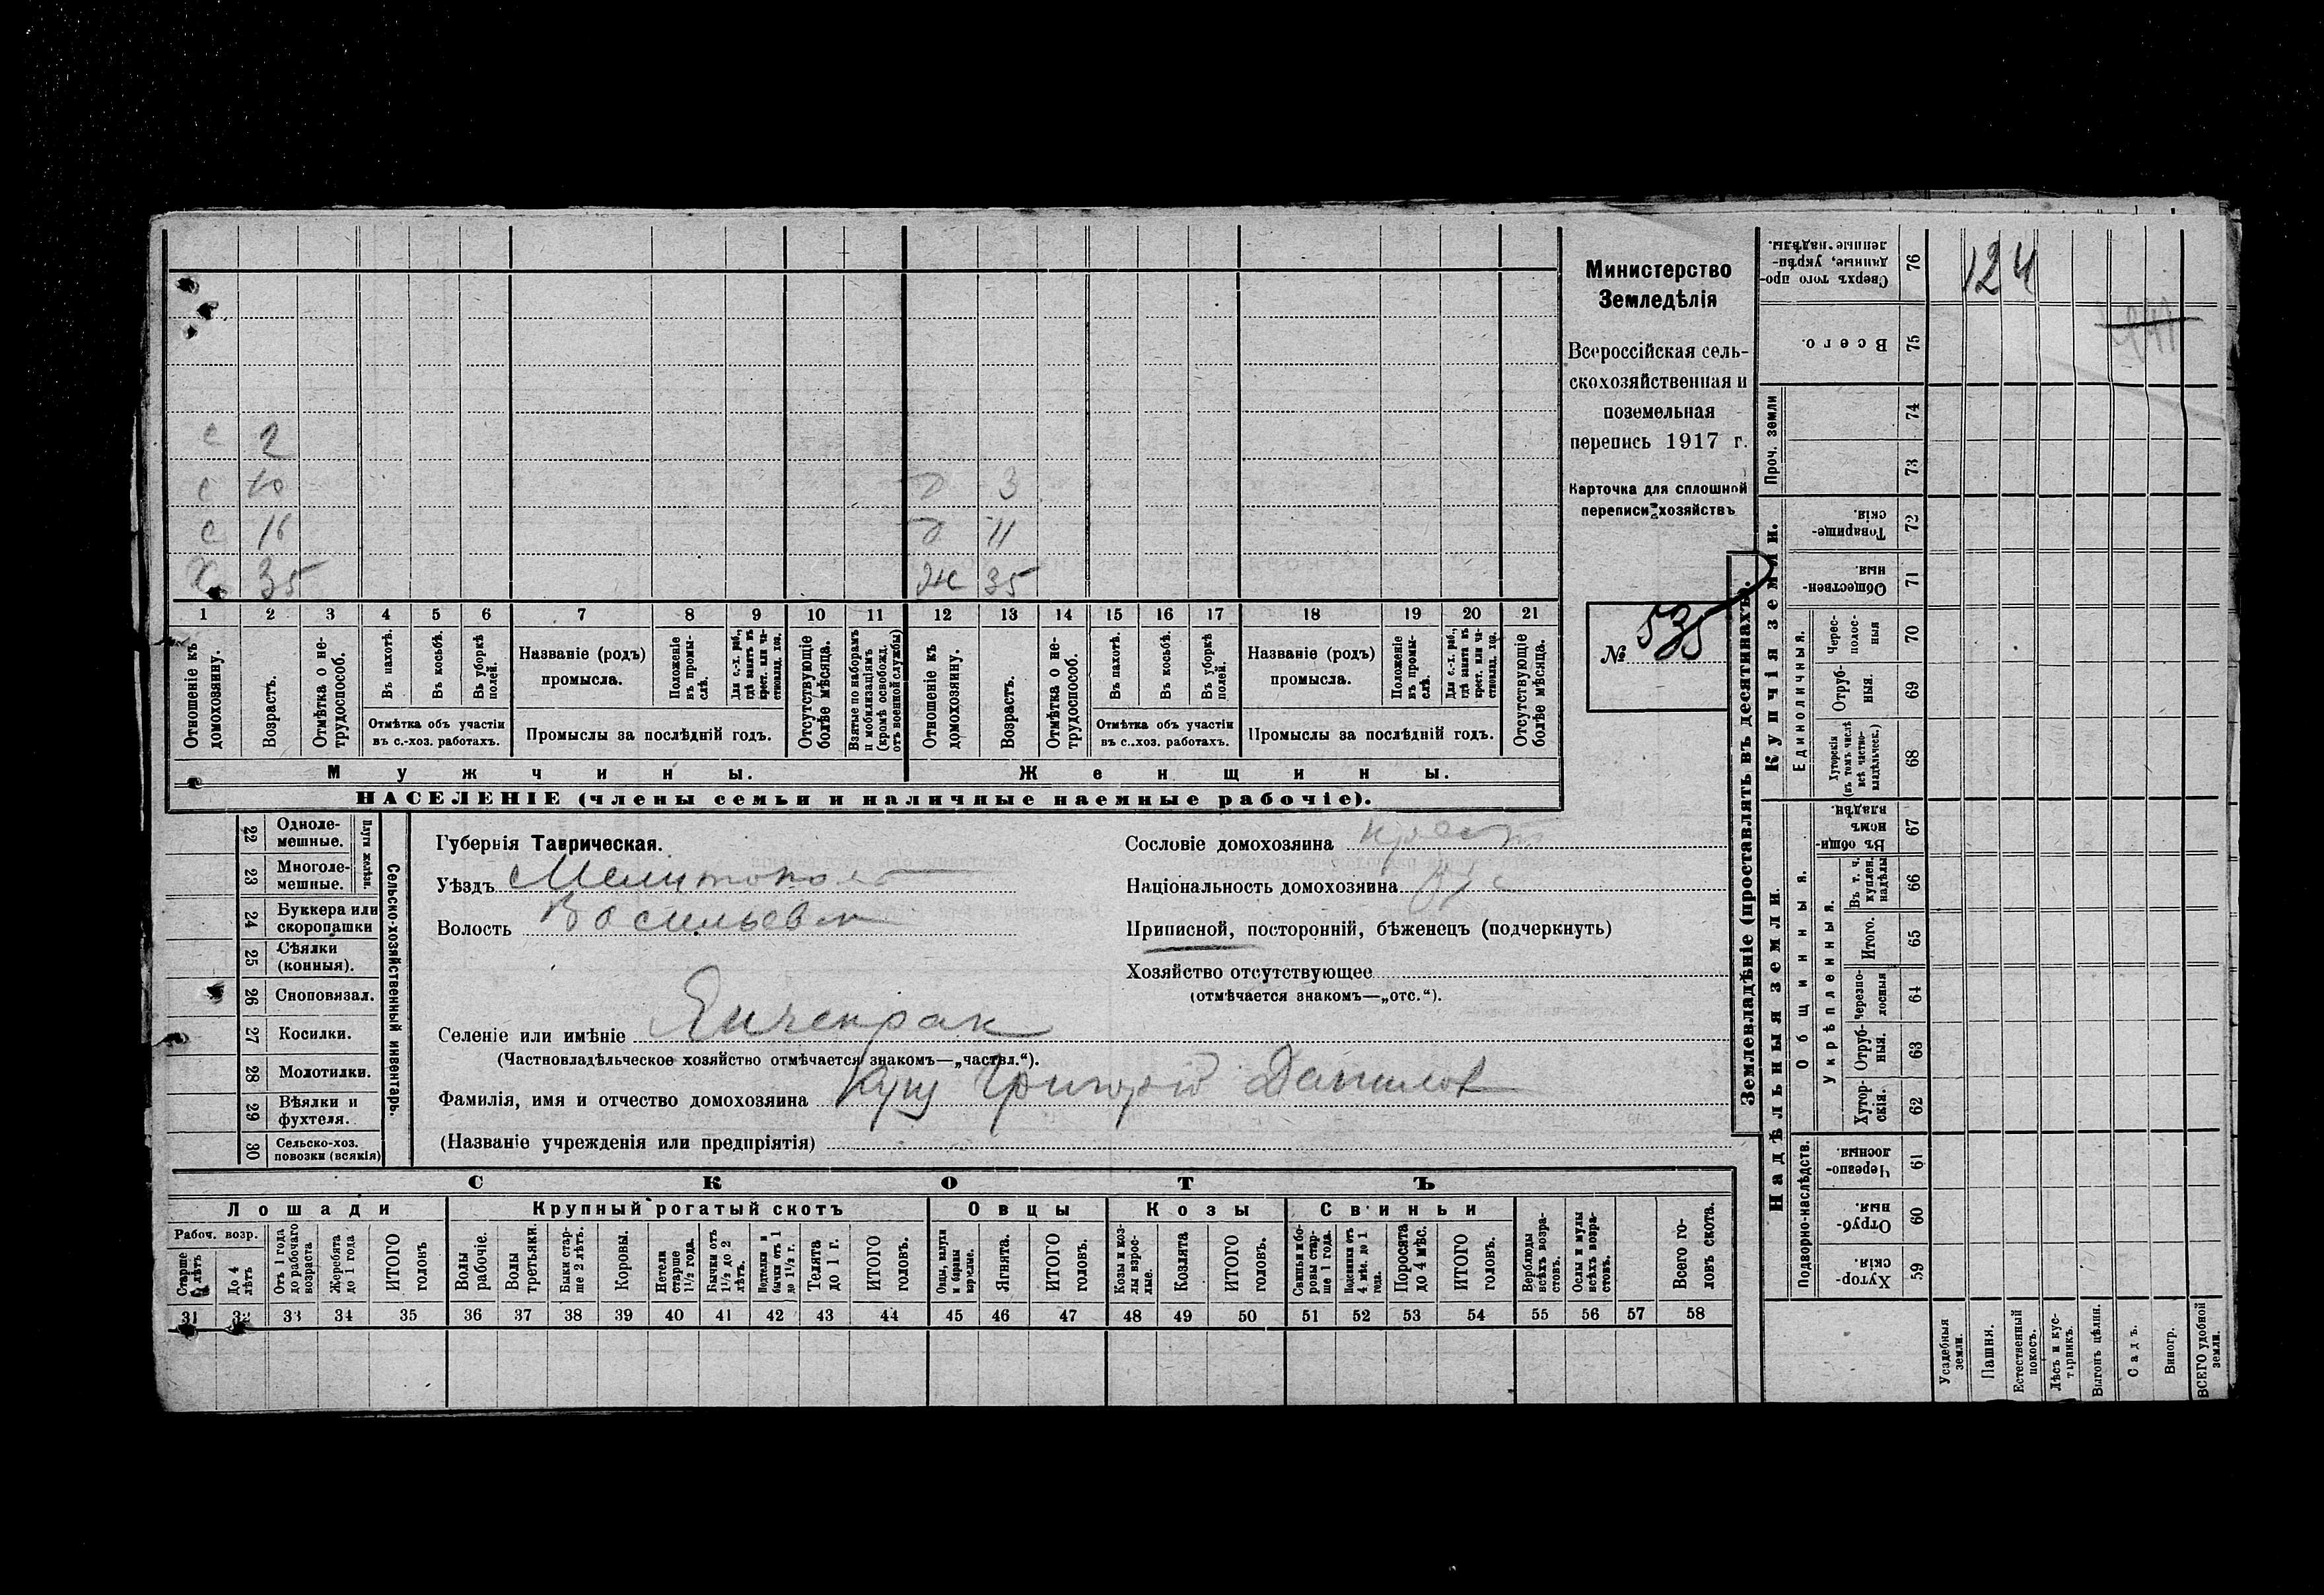 Министерство
Земледѣлія
Всероссійская сель-
скохозяйственная и
поземельная
перепись 1917 г.
Карточка для сплошной
переписи хозяйствъ
№ 535
с 2
с 10
с 16
Х 35
д 3
д 11
ж 35
1 2 3 4 5 6 7 8 9 10 11 12 13 14 15 16 17 18 19 20 21
Отношеніе къ домохозяину.
Возрастъ.
Отмѣтка о не-трудоспособ.
Въ пахотѣ.
Въ косьбѣ.
Въ уборкѣ полей.
Отмѣтка объ участіи
въ с.-хоз. работахъ.
Названіе (родъ)
промысла.
Положеніе въ промы-слѣ.
Для с.-х. раб., гдѣ занятъ въ крест. или ча-стновлад. хоз.
Промыслы за послѣдній годъ.
Отсутствующіе болѣе мѣсяца.
Взятые по наборамъ и мобилизаціямъ (кромѣ освобожд. отъ военной службы)
Отношеніе къ домохозяину.
Возрастъ.
Отмѣтка о не-трудоспособ.
Въ пахотѣ.
Въ косьбѣ.
Въ уборкѣ полей.
Отмѣтка объ участіи
въ с.-хоз. работахъ.
Названіе (родъ)
промысла.
Положеніе въ промы-слѣ.
Для с.-х. раб., гдѣ занята въ крест. или ча-стновлад. хоз.
Промыслы за послѣдній годъ.
Отсутствующіе болѣе мѣсяца.
Мужчины.
Женщины.
НАСЕЛЕНІЕ (члены семьи и наличные наемные рабочіе).
22 Одноле-мешные.
23 Многоле-мешные.
Плуги желѣзн.
24 Буккера или скоропашки
25 Сѣялки (конныя).
26 Сноповязал.
27 Косилки.
28 Молотилки.
29 Вѣялки и фухтеля.
30 Сельско-хоз. повозки (всякія)
Сельско-хозяйственный инвентарь.
Губернія Таврическая.
Уѣздъ Мелитопол
Волость Васильевк
Селеніе или имѣніе Янчекрак
(Частновладѣльческое хозяйство отмѣчается знакомъ—„частвл.“).
Фамилія, имя и отчество домохозяина Куц Григорій Данилов
(Названіе учрежденія или предпріятія)
Сословіе домохозяина крест
Національность домохозяина
Приписной, посторонній, бѣженецъ (подчеркнуть)
Хозяйство отсутствующее
(отмѣчается знакомъ—„отс.“).
СКОТЪ
Лошади
Крупный рогатый скотъ
Овцы
Козы
Свиньи
Рабоч. возр.
Старше 4 лѣтъ
До 4 лѣтъ
Отъ 1 года до рабочаго возраста
Жеребята до 1 года
ИТОГО головъ
Волы рабочіе.
Волы третьяки.
Быки стар-ше 2 лѣтъ.
Коровы.
Нетели старше 1½ года.
Бычки отъ 1½ до 2 лѣтъ.
Нетели и бычки отъ 1 до 1½ г.
Телята до 1 г.
ИТОГО головъ.
Овцы, валухи и бараны взрослые.
Ягнята.
ИТОГО головъ.
Козы и коз-лы взрос-лые.
Козлята
ИТОГО головъ.
Свиньи и бо-ровы стар-ше 1 года.
Подсвинки отъ 4 мѣс. до 1 года.
Поросята до 4 мѣс.
ИТОГО головъ.
Верблюды всѣхъ возра-стовъ.
Ослы и мулы всѣхъ возра-стовъ.
Всего го-ловъ скота.
31 32 33 34 35 36 37 38 39 40 41 42 43 44 45 46 47 48 49 50 51 52 53 54 55 56 57 58
Землевладѣніе (проставлять въ десятинахъ).
Купчія земли.
Надѣльныя земли.
Проч. земли
Единоличныя.
Общинныя.
Укрѣпленныя.
Подворно-наслѣдств.
Сверхъ того про-данные, укрѣп-ленные надѣлы. 76
124
Всего. 75
74
73
Товарище-скія. 72
Обществен-ныя 71
Черес-полос-ныя 70
Отруб-ныя. 69
Хуторскія (въ томъ числѣ всѣ частно-владѣльческ.) 68
Въ общин-номъ владѣн. 67
Въ т. ч. куплен. надѣлы 66
Итого. 65
Черезпо-лосныя 64
Отруб-ныя. 63
Хутор-скія. 62
Черезпо-лосныя. 61
Отруб-ныя. 60
Хутор-скія. 59
Усадебныя земли.
Пашня.
Естественный покосъ.
Лѣсъ и кус-тарникъ.
Выгонъ цѣлин.
Садъ.
Виногр.
ВСЕГО удобной земли.